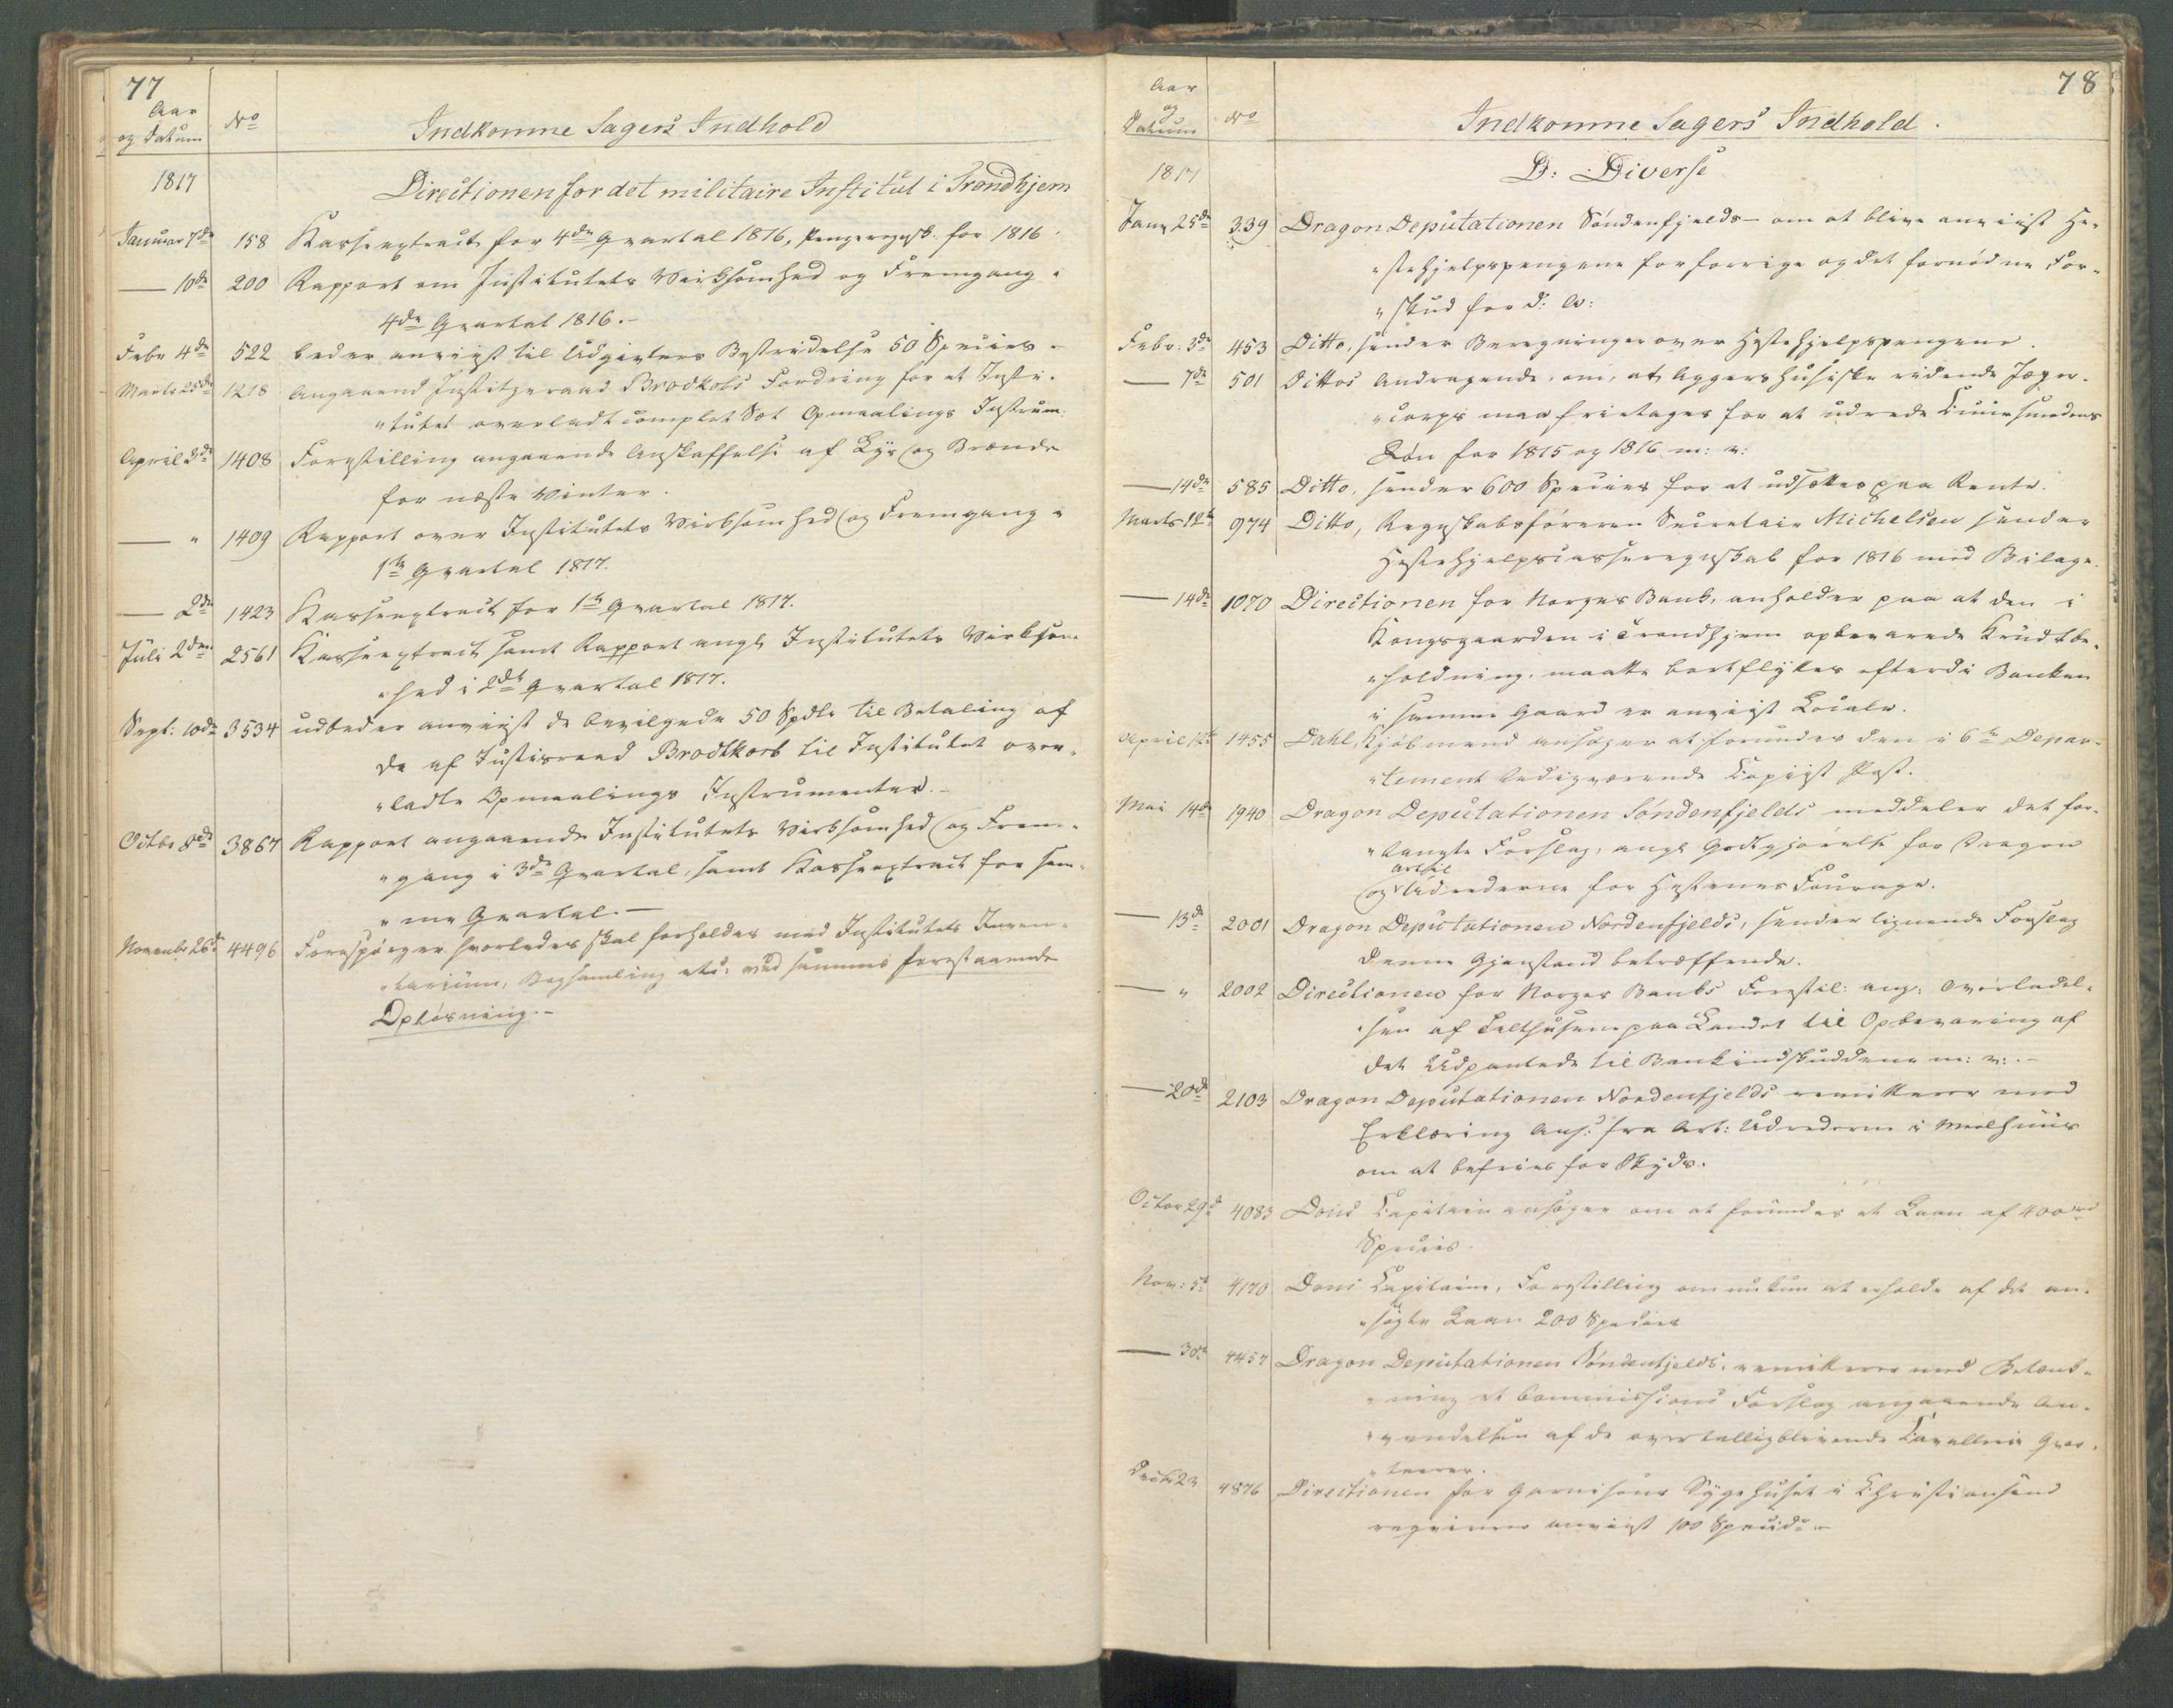 77
Aar
og Datum
No
Indkomne Sagers Indhold
1817
Directionen for det militaire Institut i Trondhjem
Januar 7de 158 Kasseextract for 4de Qvartal 1816, Pengeregnsk. for 1816
— 10de 200 Rapport om Institutets Virksomhed og Fremgang i
4de Qvartal 1816.-
Febr 4de 522 beder anviist til Udgivters Bestridelse 50 Species -
Marts 25de 1218 Angaaend Justitzraad Brodkorbs Fordring for et Insti-
"tutet overladt complet Sæt Opmaalings Instrum.
April 2de 1408 Forestilling angaaende Anskaffelse af Lys og Brænde
for næste Vinter.
— " 1409 Rapport over Institutets Virksomhed og Fremgang i
1te Qvartal 1817.
— 2de 1423 Kasseextract for 1te Qvartal 1817.
Juli 2den 2561 Kasseextract samt Rapport angl Institutets Virksom-
"hed i 2det Qvartal 1817.
Sept: 10de 3534 udbeder anviist de bevilgede 50 Spdlr til Betaling af
de af Justisraad Brodtkorb til Institutet over-
"ladte Opmaalings Instrumenter.-
Octbr 8de 3867 Rapport angaaende Institutets Virksomhed og Frem-
"gang i 3de Qvartal, samt Kasseextract for sam-
"me Qvartal.—
Novembr 26de 4496 Forespörger hvorledes skal forholdes med Institutets Inven-
"tarium, Bogsamling etc. ved sammes forestaaende
Oplösning.-
78
Aar
og
Datum
No
Indkomne Sagers Indhold.
1817
D: Diverse
Janr 25de 339 Dragon Deputationen Söndenfjelds— om at blive anviist He-
"stehjelpspengene for forrige og det fornödne For-
"skud for d: A:
Febr: 3de 453 Ditto, sender Beregninger over Hestehjelpspengene.
— 7de 501 Dittos Andragende, om, at Aggershusiske ridende Jæger-
"corps maa fritages for at udrede Cuursmedens
Lön for 1815 og 1816 m: v:
— 14de 585 Ditto, sender 600 Species for at udsættes paa Rente.
Marts 12te 974 Ditto, Regnskabsföreren Secretair Michelsen sender
Hestehjelpscasseregnskab for 1816 med Bilage.
— 14de 1070 Directionen for Norges Bank, anholder paa at den i
Kongsgaarden i Trondhjem opbevarede Krudtbe-
"holdning, maatte bortflyttes efterdi Banken
i samme Gaard er anviist Locale.
April 12te 1455 Dahl, Kjöbmand ansöger at forundes den i 6te Depar-
"tement ledigværende Copiist Post.
Mai 14de 1940 Dragon Deputationen Söndenfjelds meddeler det for-
"langte Forslag, angl Godtgjörelse for Dragon
Artil
og Udrederne for Hestenes Fourage.
— 13de 2001 Dragon Deputationen Nordenfjelds, sender lignende Forslag
denne Gjenstand betræffende.
— " 2002 Directionen for Norges Banks Forestil: ang: Overladel-
"sen af Telthusene paa Landet til Opbevaring af
det Udpantede til Bankindskuddene m: v:.-
— 20de 2103 Dragon Deputationen Nordenfjelds remitterer med
Erklæring Ans: fra Art: Udrederne i Meelhuus
om at befries for Skyds.
Octor 29de 4083 Dons Capitain ansöger om at forundes et Laan af 400
Species.
Nov: 5te 4170 Dons Capitain, Forestilling om at erholde af det an-
"sögte Laan 200 Species
— 30te 4457 Dragon Deputationen Söndenfjelds, remitterer med Betænk-
"ning et Commissions Forslag angaaende An-
"vendelsen af de overtalligblivende Cavallerie Qvar-
"terer.
Decbr 23 4876 Directionen for Garnisons Sygehuset i Christiansand
reqvirerer anviist 100 Specid.-